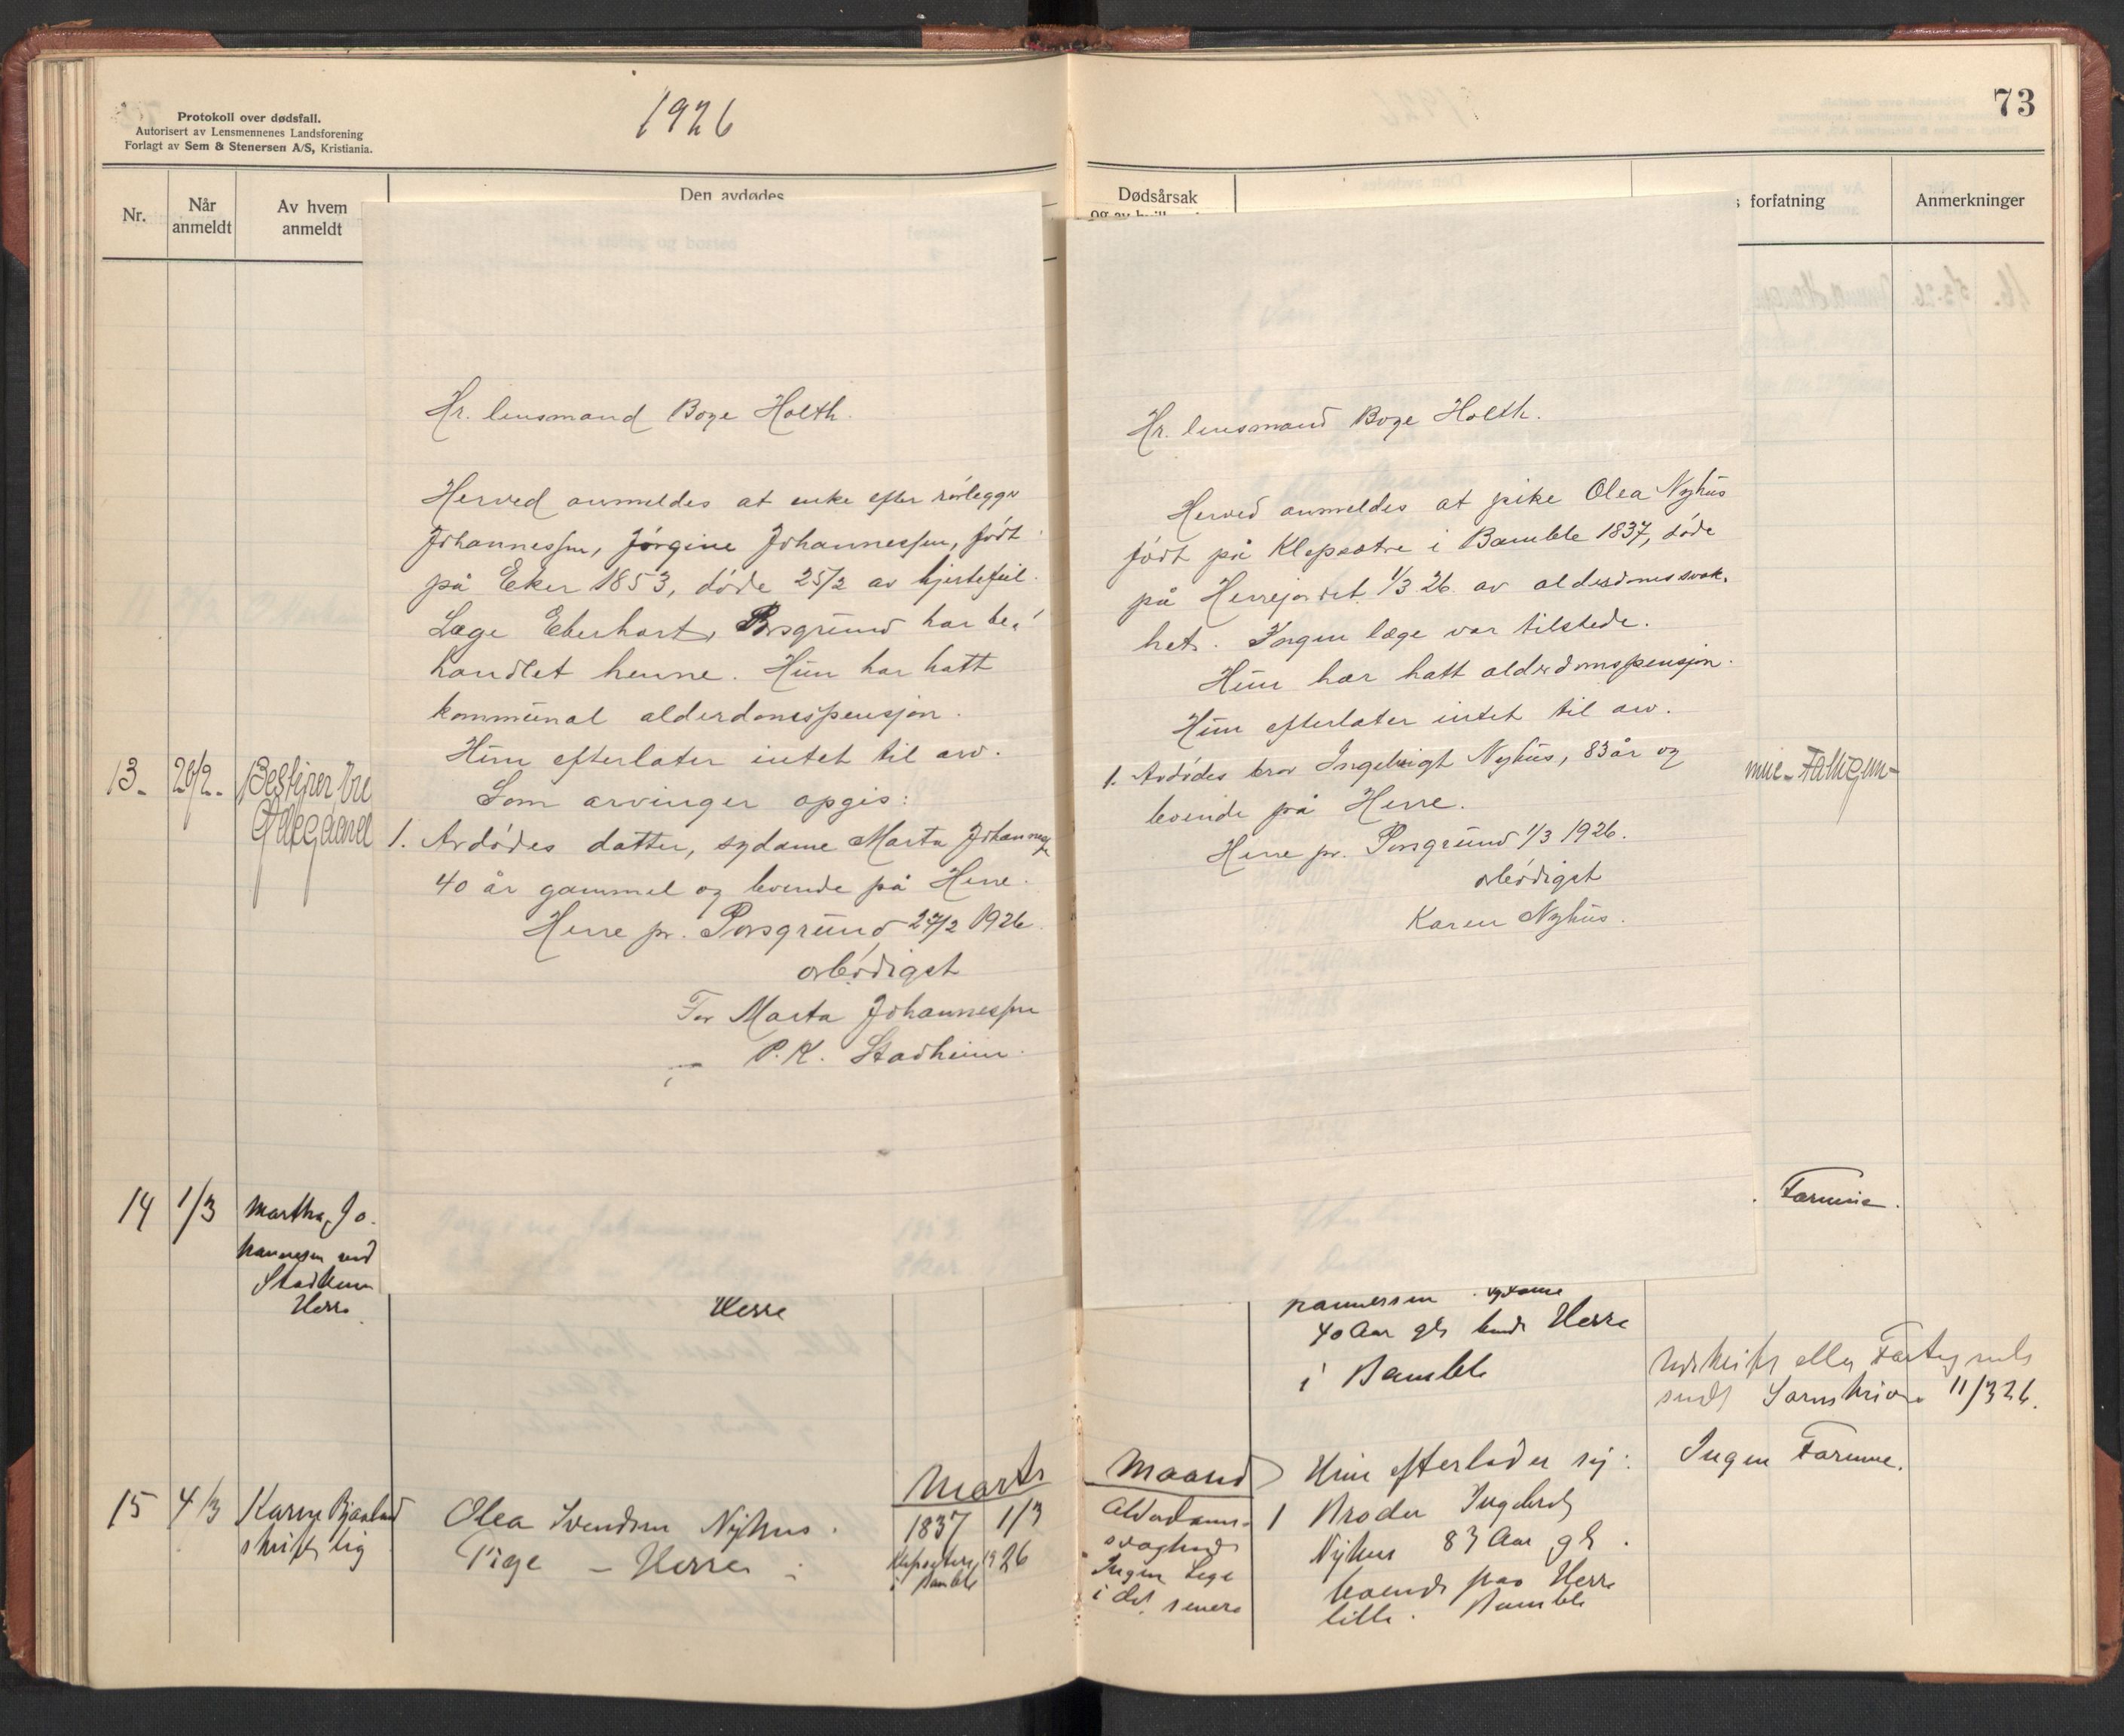 Protokoll over dødsfall.
Autorisert av Lensmennenes Landsforening
Forlagt av Sem & Stenersen A/S, Kristiania.
1926
Nr.
Når
anmeldt
Av hvem
anmeldt
Den avdødes
13.
26/2.
14
1/3
Martha Jo
hannesen ved
Stadheim
Herre
Hr. lensmand Boye Holth.
Herved anmeldes at enke efter rørlegger
Johannessen, Jørgine Johannessen, født
på Eker 1853, døde 25/2 av hjertefeil.
Læge Eberhart, Porsgrund har be-
handlet henne. Hun har hatt
kommunal alderdomspensjon.
Hun efterlater intet til arv.
Som arvinger opgis:
1. Avdødes datter, sydame Marta Johannessen
40 år gammel og boende på Herre.
Herre pr. Porsgrund 27/2 1926.
ærbødigst
For Marta Johannessen
P.K. Stadheim.
Herre
Marts
15
4/3
Karen
skriftlig
Olea Svendsen Nyhus.
Pige - Herre
1837
Klepsætre
i Bamble
1/3
1926
73
Dødsårsak
forfatning
Anmerkninger
Hr. lensmand Boye Holth.
Herved anmeldes at pike Olea Nyhus
født på Klepsætre i Bamble 1837, døde
på Herrejordet 1/3 26. av alderdomssvak-
het. Ingen læge var tilstede.
Hun har hatt alderdomspensjon.
Hun efterlater intet til arv.
1. Avdødes bror Ingebrigt Nyhus, 83 år og
boende på Herre.
Herre pr. Porsgrund 1/3 1926.
ærbødigst
Karen Nyhus.
Formue.
hannessen sydame
40 Aar gl. boende Herre
i Bamble
sendt Sorenskriver 11/3 26.
Maaned
Alderdoms-
svaghed
Ingen Læge
i det senere
Hun efterlader sig:
1 Broder Ingebret
Nyhus 83 Aar gl.
boende paa Herre
Bamble
Ingen Formue.